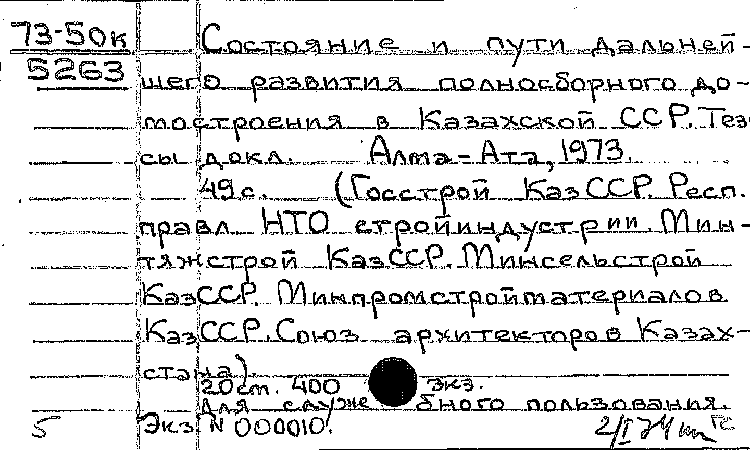 73-50к
5263
Состояние и пути дальней-
шего развития полносборного до-
мостроения в Казахской ССР. Тези-
сы докл. Алма-Ата, 1973.
49с. (Госстрой КазССР. Респ.
правл НТО стройиндустрии. Мин-
тяжстрой КазССР. Минсельстрой
КазССР. Минпромстройматериалов
КазССР. Союз архитекторов Казах-
стана).
20см. 400 экз.
Для служебного пользования.
5 Экз. N 000010.